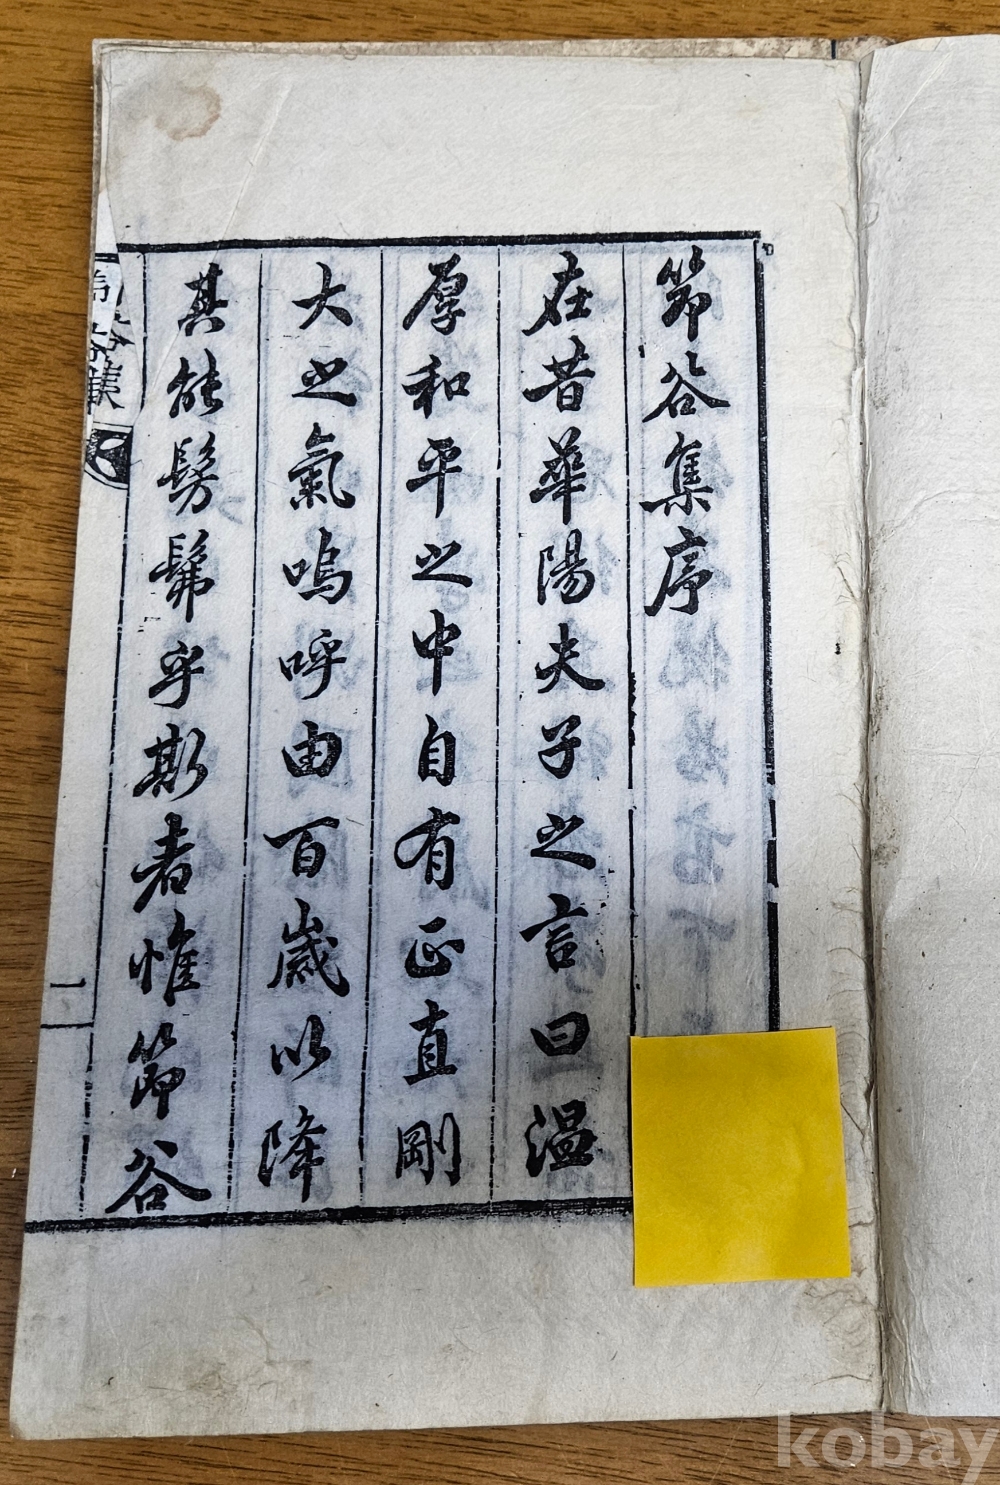 節谷集序
在昔華陽夫子之言曰温
厚和平之中自有正直剛
大之氣嗚呼由百歲以降
其能髣髴乎斯者惟節谷
谷集
一
kobay